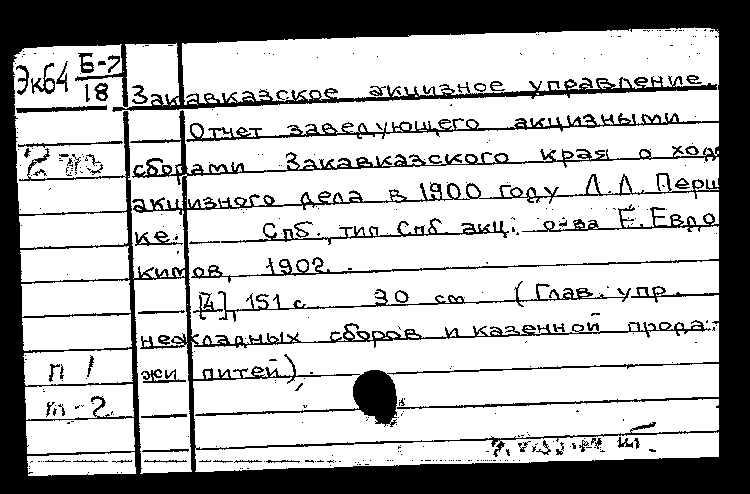 Эк64 Б-7
18
Закавказское акцизное управление.
Отчет заведующего акцизными
2 экз сборами Закавказского края о ходе
акцизного дела в 1900 году Л.Л. Перш
ке. Спб., тип Спб акц. о-ва Е. Евдо
кимов, 1902.
[4], 151 с 30 см (Глав. упр.
неокладных сборов и казенной прода-
п 1 жи питей).
т-2